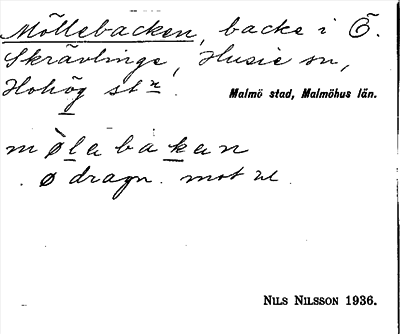 Möllebacken, backe i Ö.
Skrävlinge, Husie sn,
Hohög st:n.
Malmö stad, Malmöhus län.
mø̀lebakan
ø dragn. mot
NILS NILSSON 1936.